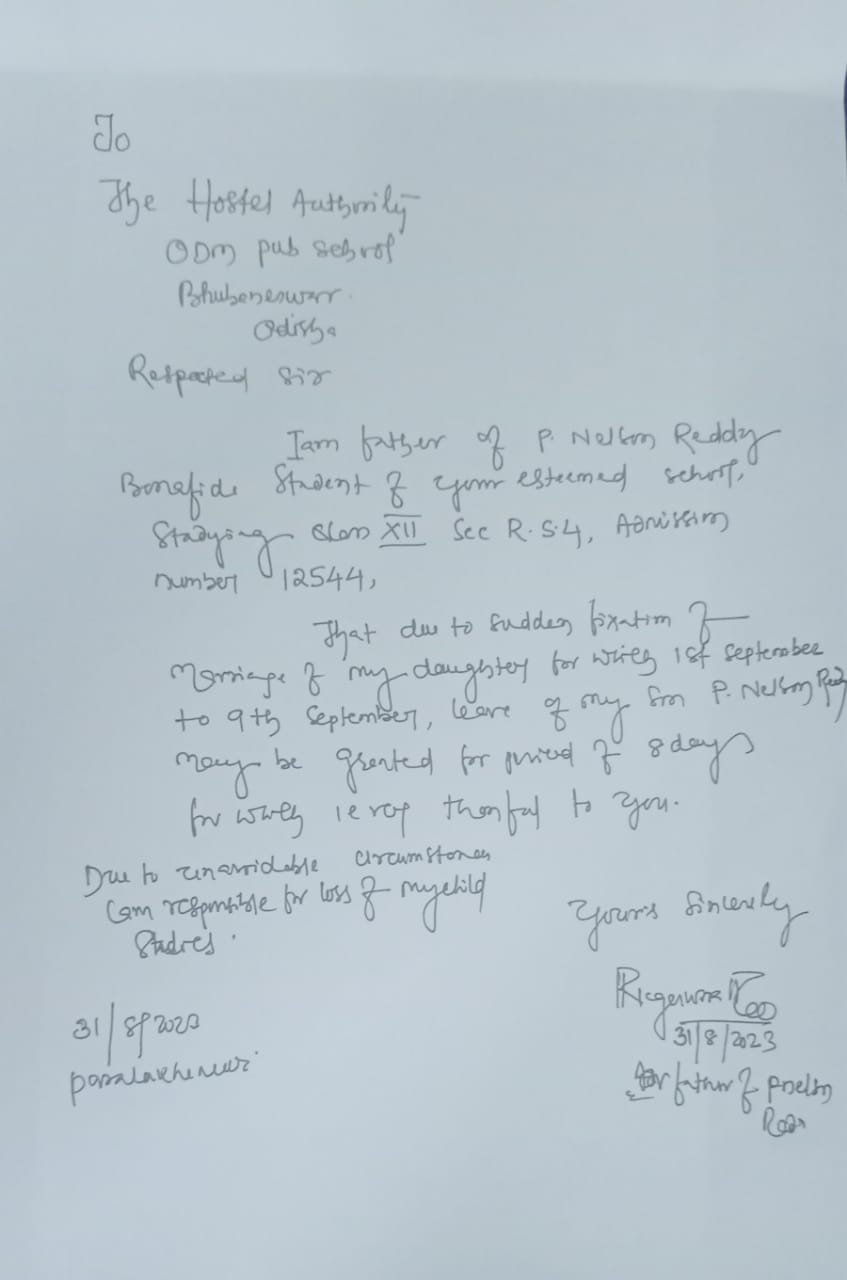 To
The Hostel Authority
ODM pub school
Bhubaneswar.
Odisha
Respected Sir
I am father of P. Nelson Reddy
Bonafide Student of your esteemed school,
Studying Class XII Sec R.S.4, Admission
number 12544,
That due to sudden fixation of
Marriage of my daughter for which 1st September
to 9th September, leave of my Son P. Nelson Reddy
may be granted for period of 8 days
for which thankful to you.
Due to unavoidable circumstances
I am responsible for loss of my child
Studies.
Yours Sincerely
31/8/2023
31/8/2023
father of P Nelson